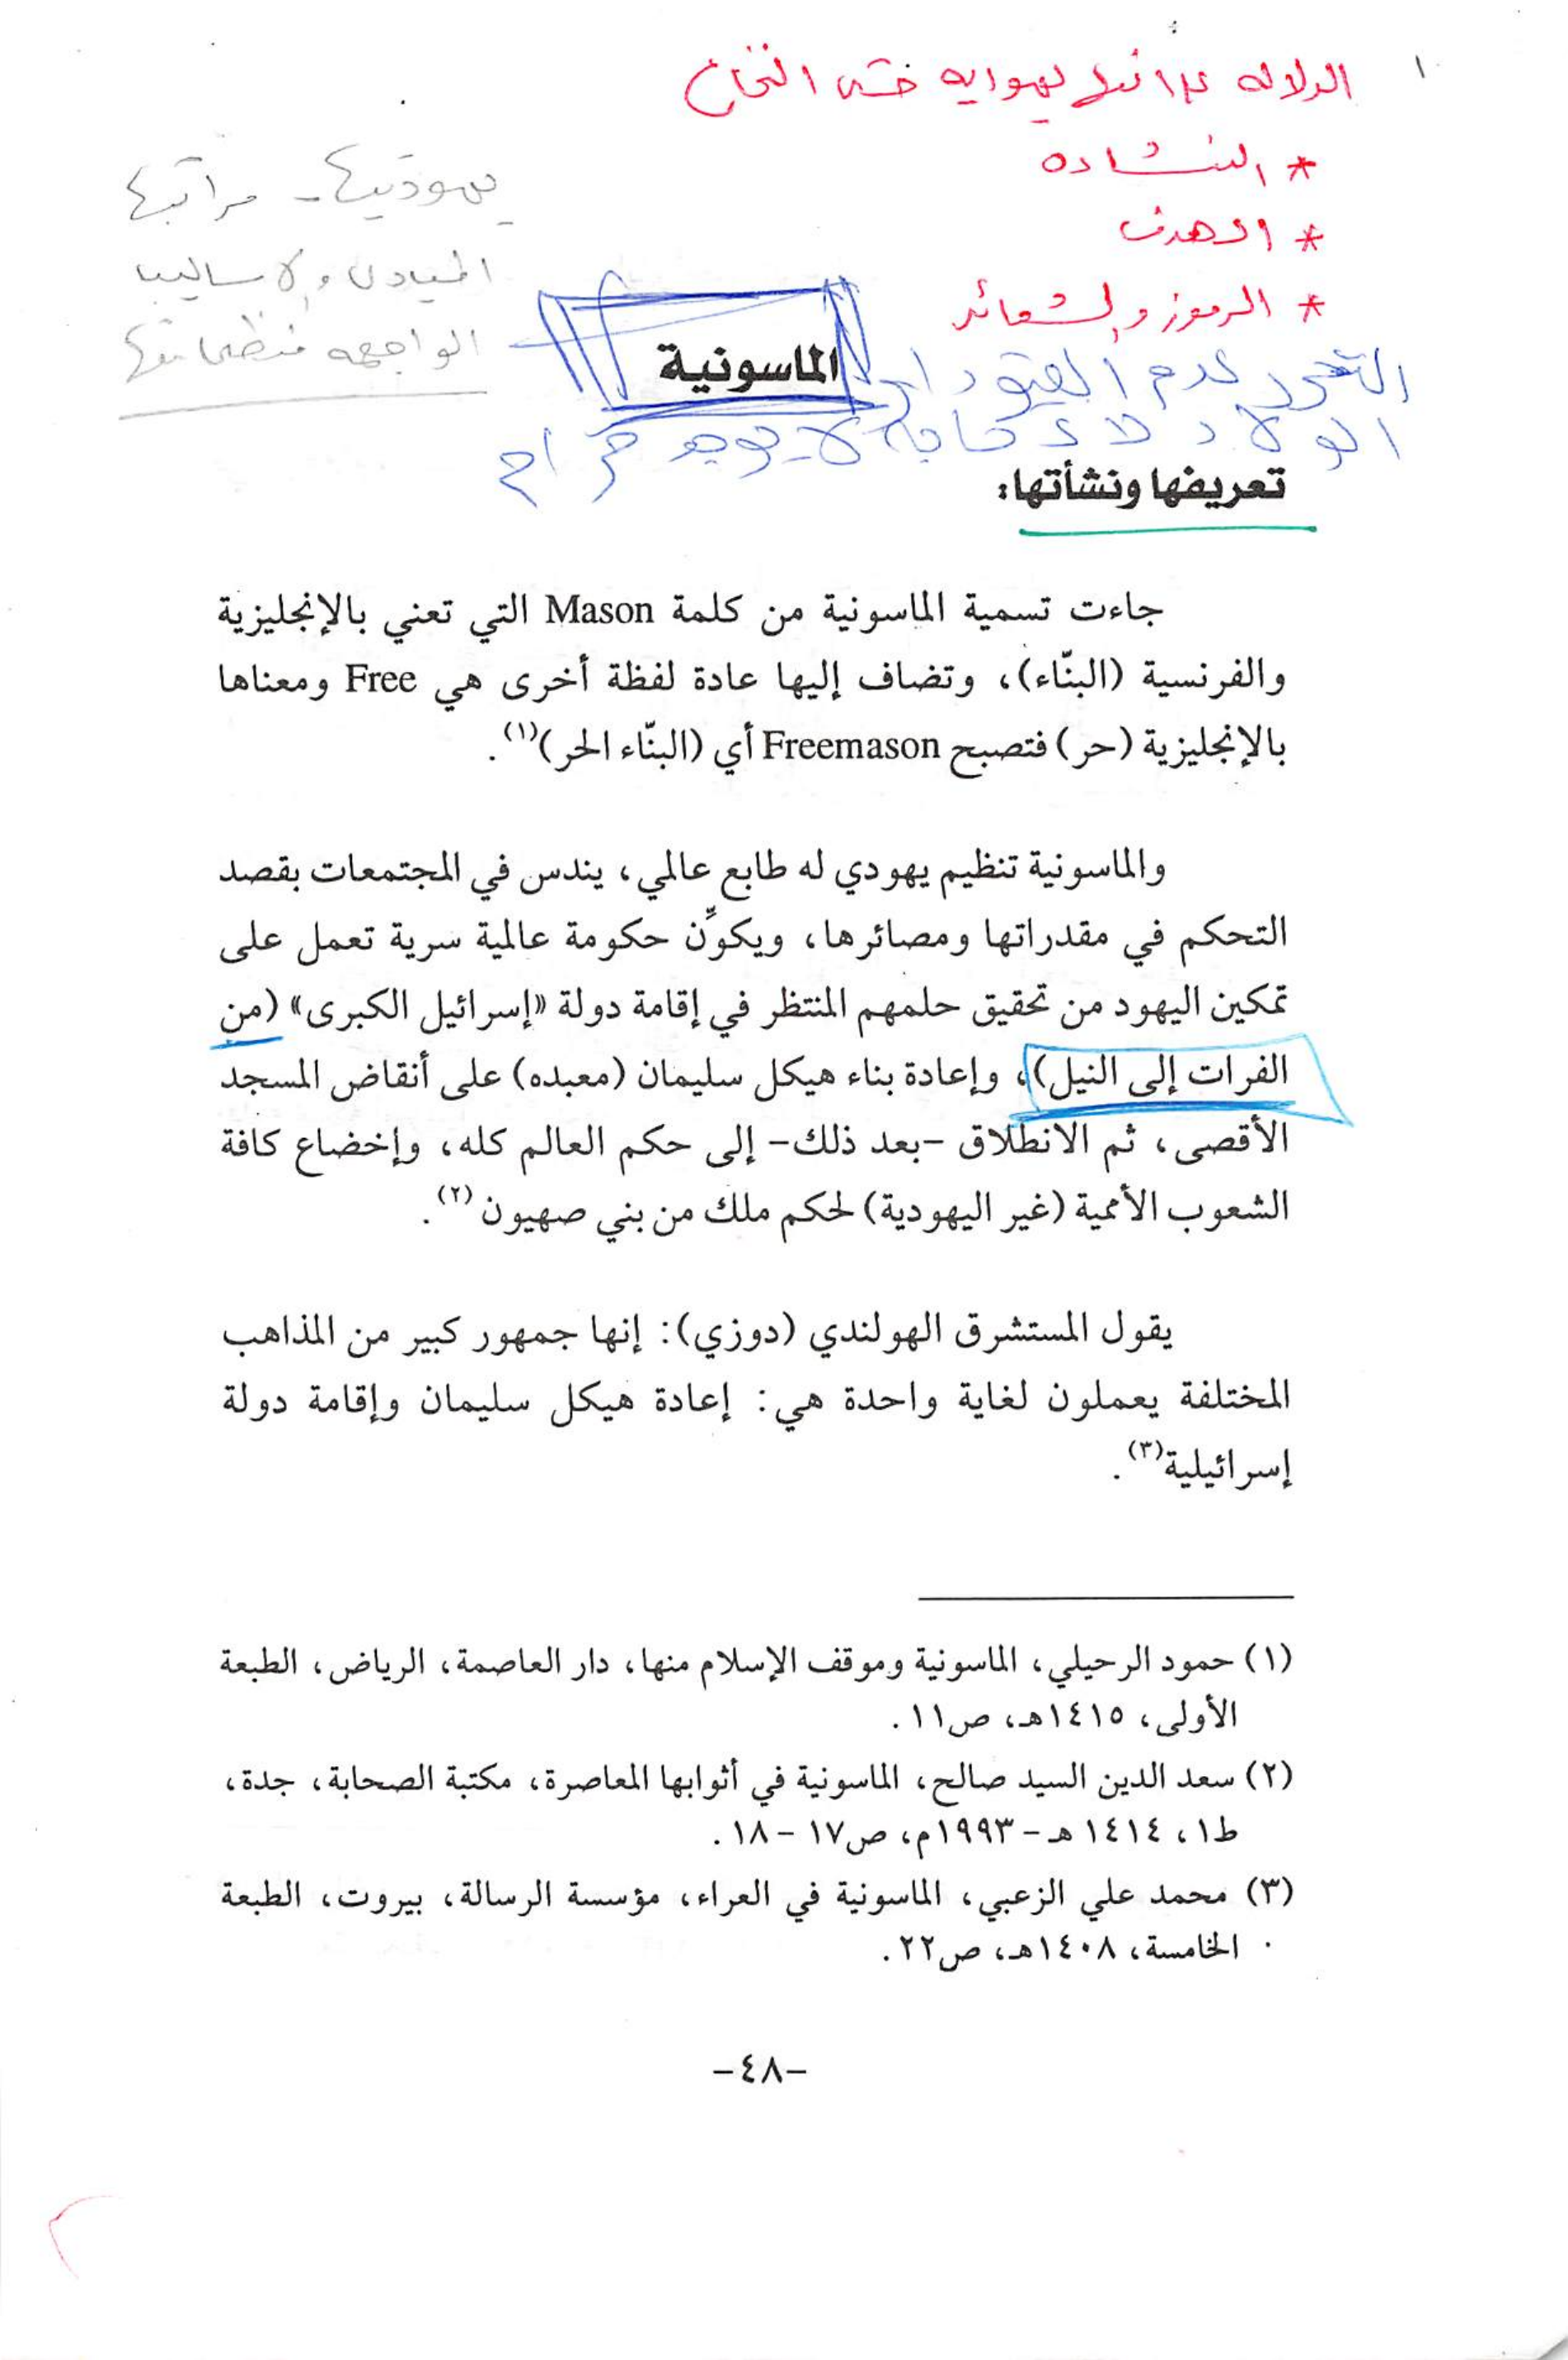 الدلاله يهودايه حتى النخاع
* النشاده
* الهدف
* الرموز والشعائر
يهوديتها - مراتبها
المبادئ والاساليب
الواجهه منظماتها
الماسونية
التحرر عدم القيود
الولاد لا يوجد حرام
تعريفها ونشأتها:
جاءت تسمية الماسونية من كلمة Mason التي تعني بالإنجليزية
والفرنسية (البنّاء)، وتضاف إليها عادة لفظة أخرى هي Free ومعناها
بالإنجليزية (حر) فتصبح Freemason أي (البنّاء الحر)(١).
والماسونية تنظيم يهودي له طابع عالمي، يندس في المجتمعات بقصد
التحكم في مقدراتها ومصائرها، ويكوِّن حكومة عالمية سرية تعمل على
تمكين اليهود من تحقيق حلمهم المنتظر في إقامة دولة «إسرائيل الكبرى» (من
الفرات إلى النيل)، وإعادة بناء هيكل سليمان (معبده) على أنقاض المسجد
الأقصى، ثم الانطلاق -بعد ذلك- إلى حكم العالم كله، وإخضاع كافة
الشعوب الأممية (غير اليهودية) لحكم ملك من بني صهيون(٢).
يقول المستشرق الهولندي (دوزي): إنها جمهور كبير من المذاهب
المختلفة يعملون لغاية واحدة هي: إعادة هيكل سليمان وإقامة دولة
إسرائيلية(٣).
(١) حمود الرحيلي، الماسونية وموقف الإسلام منها، دار العاصمة، الرياض، الطبعة
الأولى، ١٤١٥هـ، ص١١.
(٢) سعد الدين السيد صالح، الماسونية في أثوابها المعاصرة، مكتبة الصحابة، جدة،
ط١، ١٤١٤ هـ - ١٩٩٣م، ص١٧ - ١٨.
(٣) محمد علي الزعبي، الماسونية في العراء، مؤسسة الرسالة، بيروت، الطبعة
الخامسة، ١٤٠٨هـ، ص٢٢.
-٤٨-